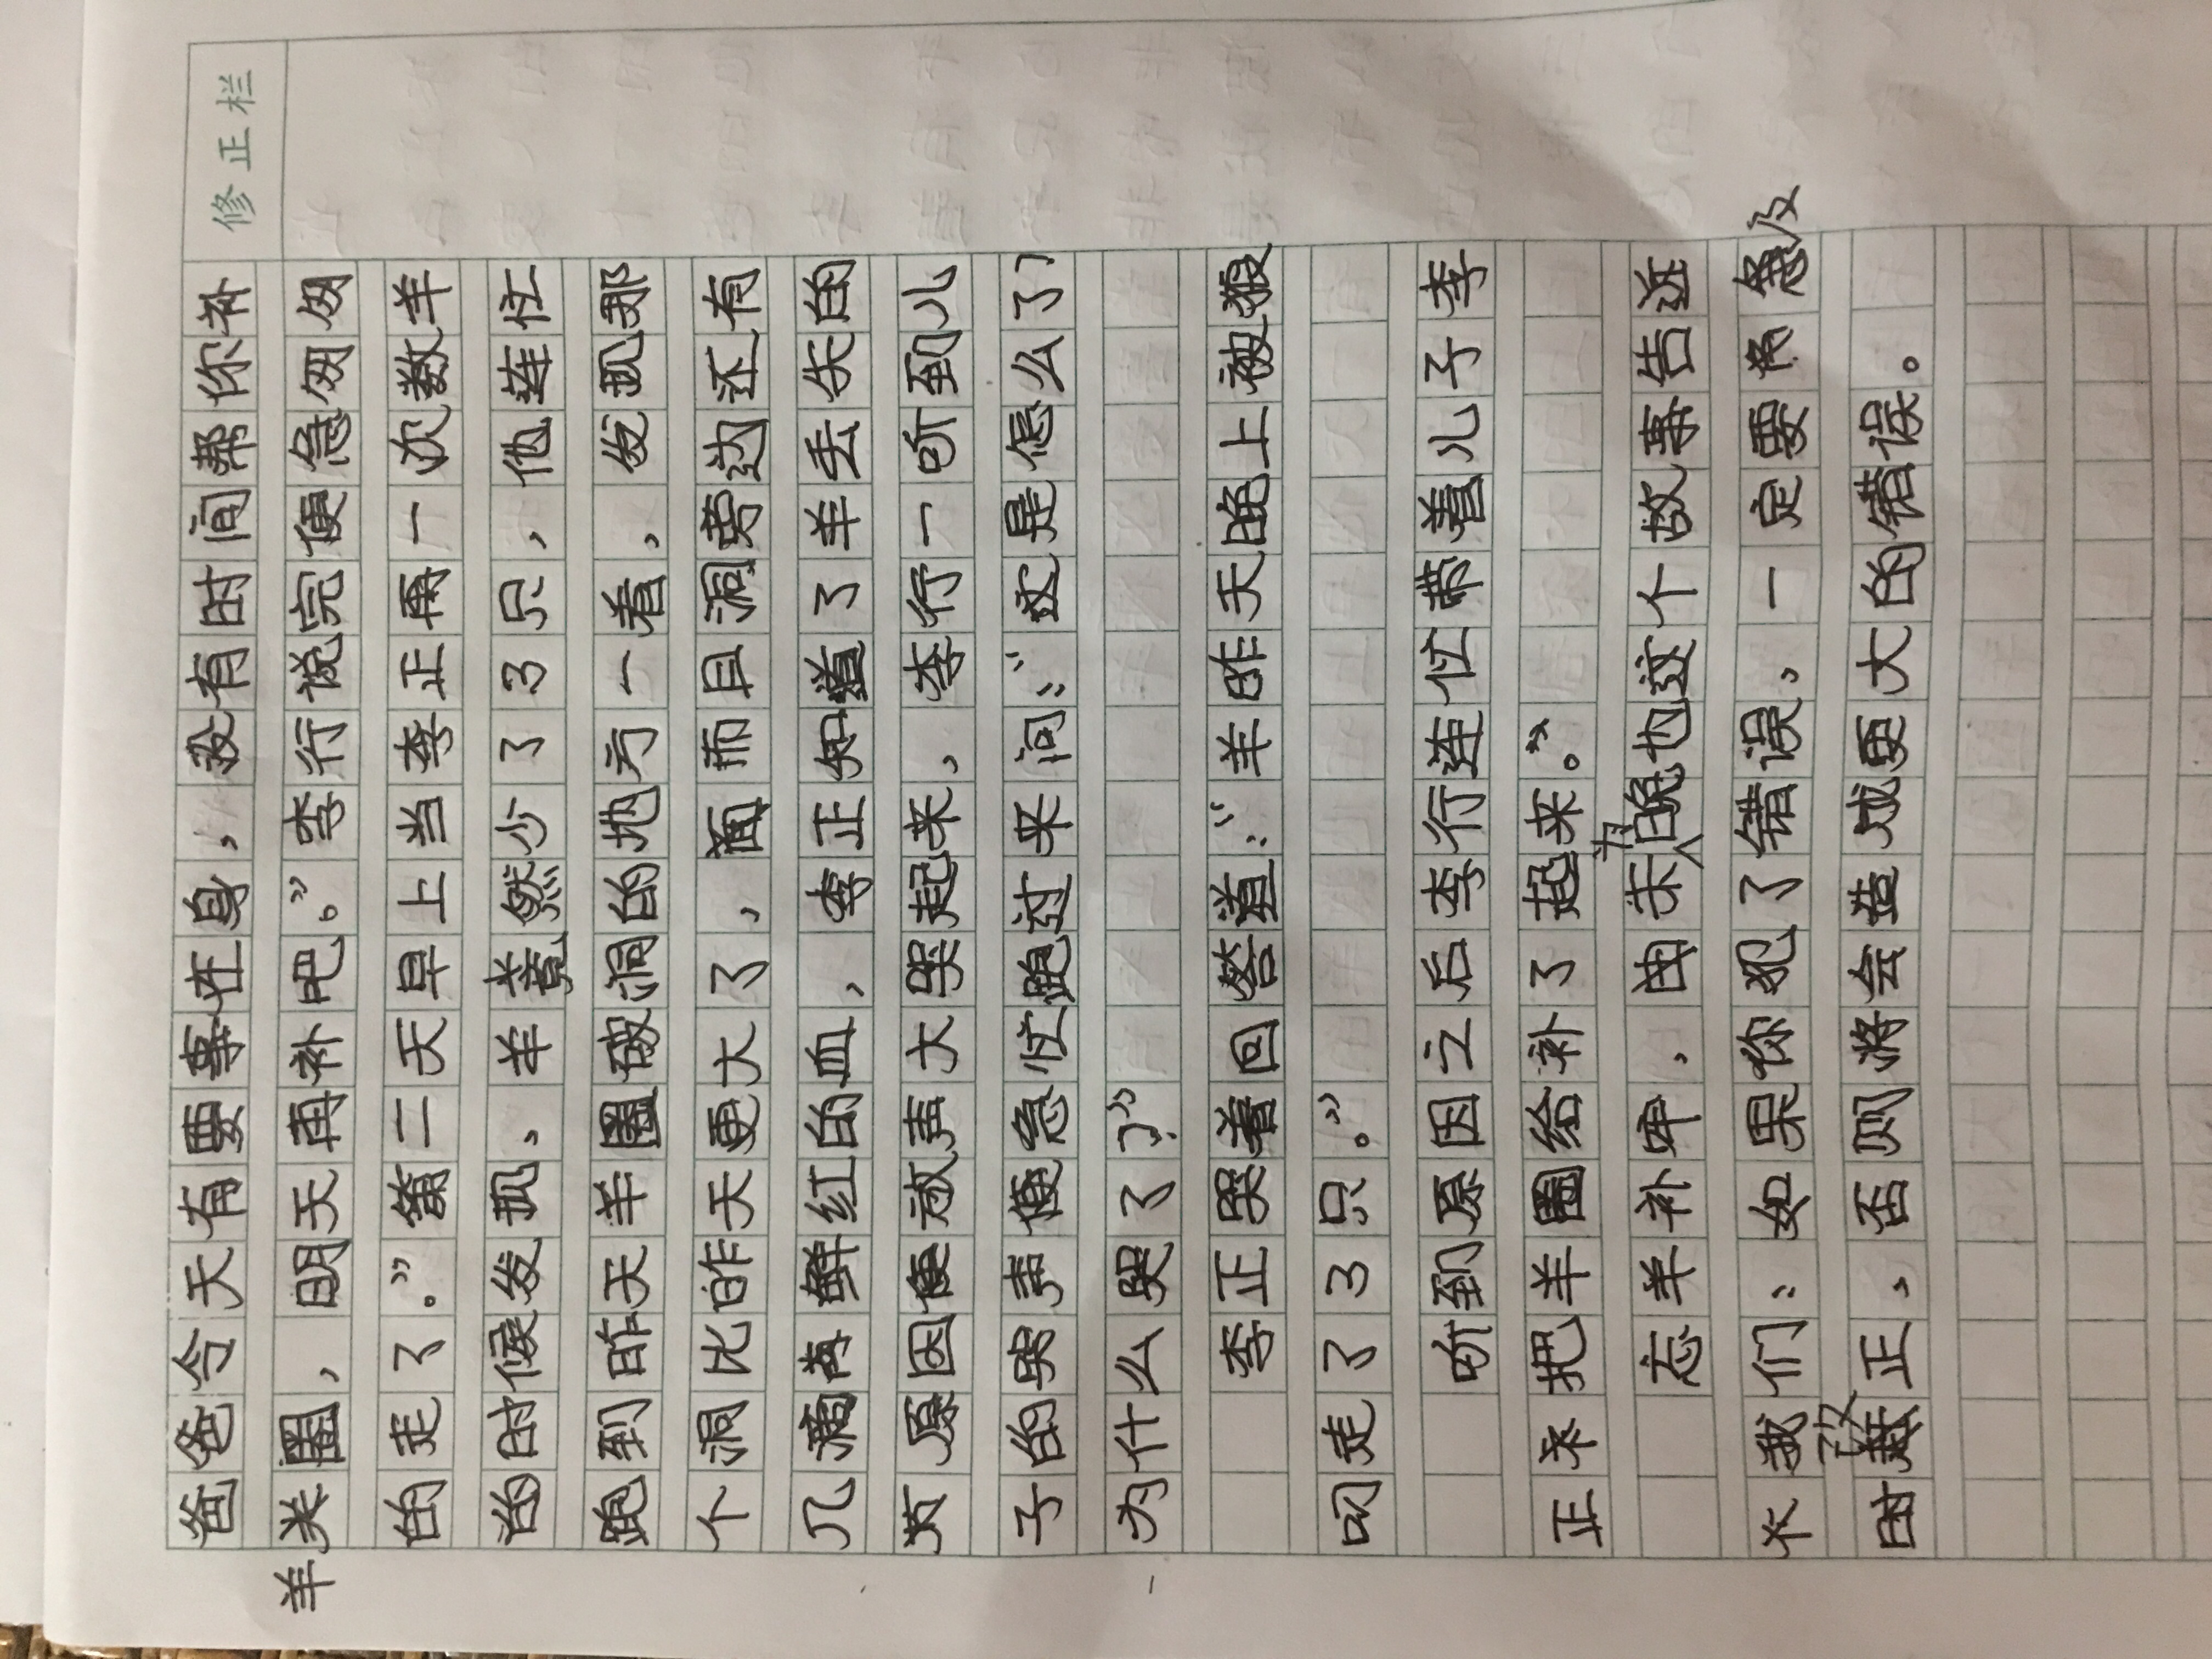 修正栏
爸爸今天有要事在身，没有时间帮你补
羊圈，明天再补吧。”李行说完便急匆匆
的走了。”第二天早上当李正再一次数羊
的时候发现、羊竟然少了3只，他连忙
跑到昨天羊圈破洞的地方一看，发现那
个洞比昨天更大了，而且洞旁边还有
几滴鲜红的血，李正知道了羊丢失的
原因便放声大哭起来，李行一听到儿
子的哭声便急忙跑过来问：“这是怎么了
为什么哭了？”
李正哭着回答道：“羊昨天晚上被狼
叼走了3只。”
听到原因之后李行连忙带着儿子李
正把羊圈给补了起来。”
羊补牢，未为晚也这个故事告诉
我们：如果你犯了错误，一定要及
时改正，否则将会造成更大的错误。